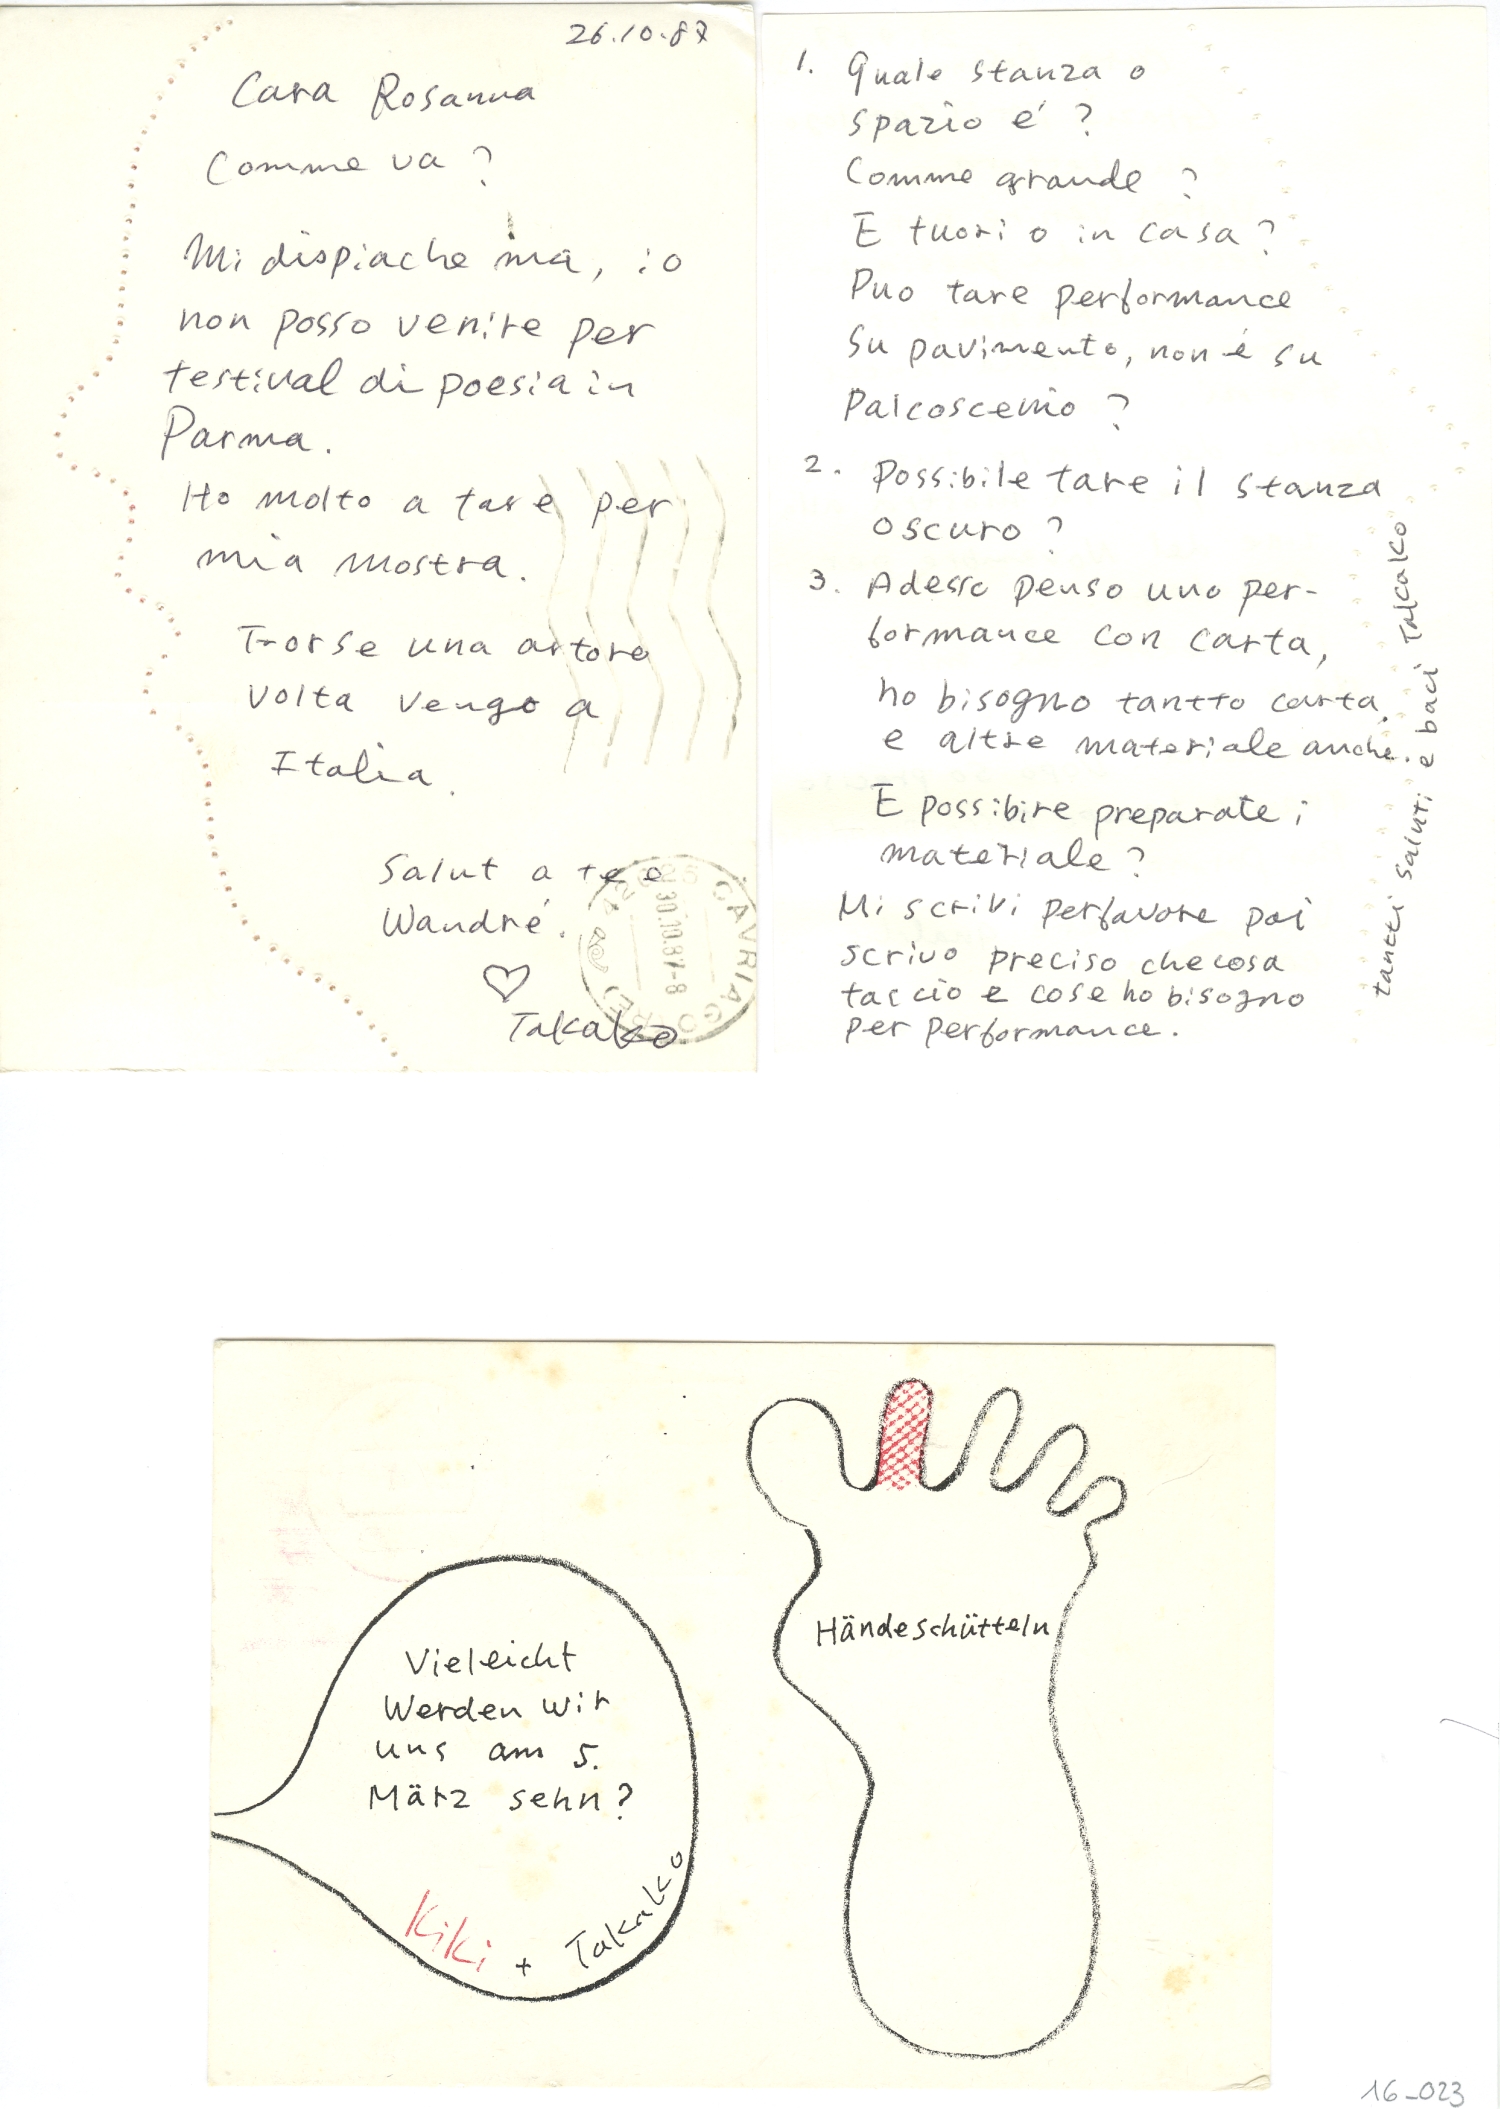 26.10.87
Cara Rosanna
Comme va?
Mi dispiache ma, io
non posso venire per
festival di poesia in
Parma.
Ho molto a fare per
mia mostra.
Forse una
volta vengo a
Italia.
Salut a te e
Wandré.
♡
Takako
42025 CAVRIAGO (RE)
30.10.87-8
1. Quale stanza o
spazio é?
Comme grande?
E fuori o in casa?
Puo fare performance
su pavimento, non é su
Palcoscenio?
2. Possibile fare il stanza
oscuro?
3. Adesso penso uno per-
formance con carta,
ho bisogno tantto carta
e altre materiale anche.
E possibire preparate i
materiale?
Mi scrivi perfavore poi
scrivo preciso che cosa
faccio e cose ho bisogno
per performance.
tantti saluti e baci Takako
Vieleicht
Werden wir
uns am 5.
März sehn?
Kiki + Takako
Händeschütteln
16_023